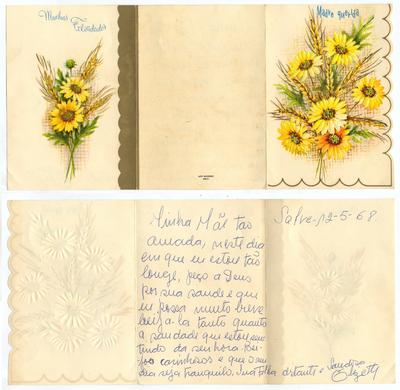 Muitas
Felicidades
Madre querida
Salve-12-5-68.
Minha Mãe tão
amada, neste dia
em que eu estou tão
longe, peço a Deus
por sua saude e que
eu possa muito breve
beija-la tanto quanto
a saudade que estou sen-
tindo da senhora. Bei-
jos carinhosos e que o seu
dia seja tranquilo. Sua filha distante e saudosa